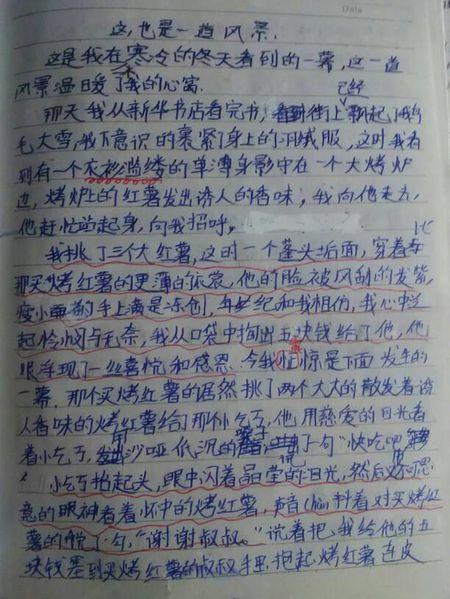 这,也是一道风景.
这是我在寒冷的冬天看到的一幕,这一道
风景温暖了我的心窝.
已经
那天我从新华书店看完书,街上飘起了鹅
毛大雪,我下意识的裹紧了身上的羽绒服,这时我看
到有一个衣衫褴缕的单薄身影守在一个大烤炉
边,烤炉上的红薯发出诱人的香味,我向他走去,
他赶忙站起身,向我招呼.
我挑了三个大红薯,这时一个蓬头垢面,穿着
那买烤红薯的更薄的依裳,他的脸被风刮的发紫,
瘦小的手上满是冻创,年纪和我相仿,我心中泛
起怜悯与无奈,我从口袋中掏出五块钱给了他,他
眼浮现了一丝喜悦和感恩.令我惊是下面发生的
一幕,那个买烤红薯的居然挑了两个大大的散发着诱
人香味的烤红薯给了那小乞丐,他用慈爱的目光看
着小乞丐,沙哑低沉的了一句"快吃吧
"小乞丐抬起头,眼中闪着晶莹的泪光,然后
意的眼神看着怀中的烤红薯,声音chan抖着对买烤红
薯的说了句,"谢谢叔叔."说着把我给他的五
块钱塞到买烤红薯的叔叔手里.抱起烤红薯连皮